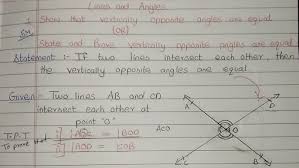 Lines and Angles
1. Show that vertically opposite angles are equal
(OR)
State and Prove vertically opposite angles are equal
Statement :- If two lines intersect each other, then
the vertically opposite angles are equal.
Given:- Two lines AB and CD
intersect each other at
point "O"
T.P.T
To prove that
i] ∠AOC = ∠BOD
ii] ∠AOD = ∠COB
AOC
A D
O
C B